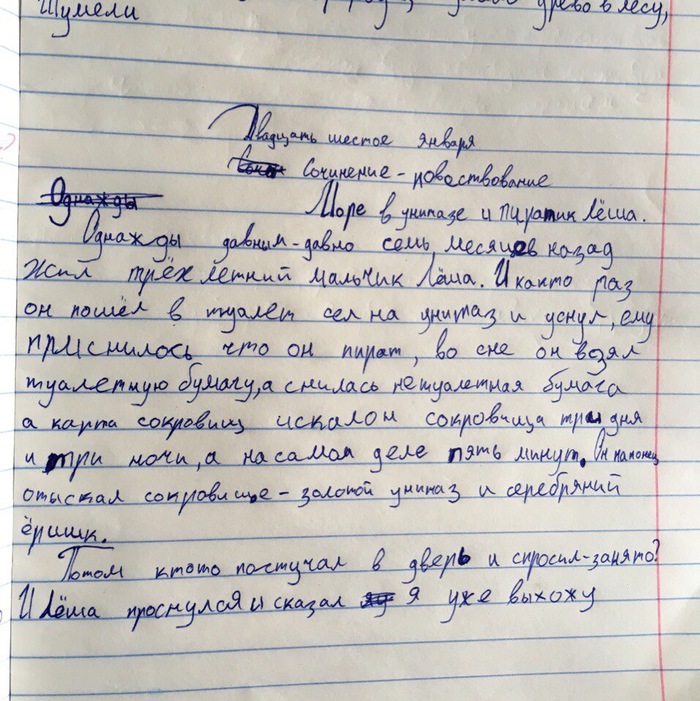 Шумели древо в лесу,
Двадцать шестое января
Сочинение-повествование
Однажды Море в унитазе и пиратик Лёша.
Однажды давным-давно семь месяцев назад
жил трёх летний мальчик Лёша. И както раз
он пошёл в туалет сел на унитаз и уснул, ему
приснилось что он пират, во сне он взял
туалетную бумагу, а снилась нетуалетная бумага
а карта сокровищ искал он сокровища три дня
и три ночи, а на самом деле пять минут. Он наконец
отыскал сокровище - золотой унитаз и серебряний
ёришк.
Потом ктото постучал в дверь и спросил-занято?
И Лёша проснулся и сказал я уже выхожу